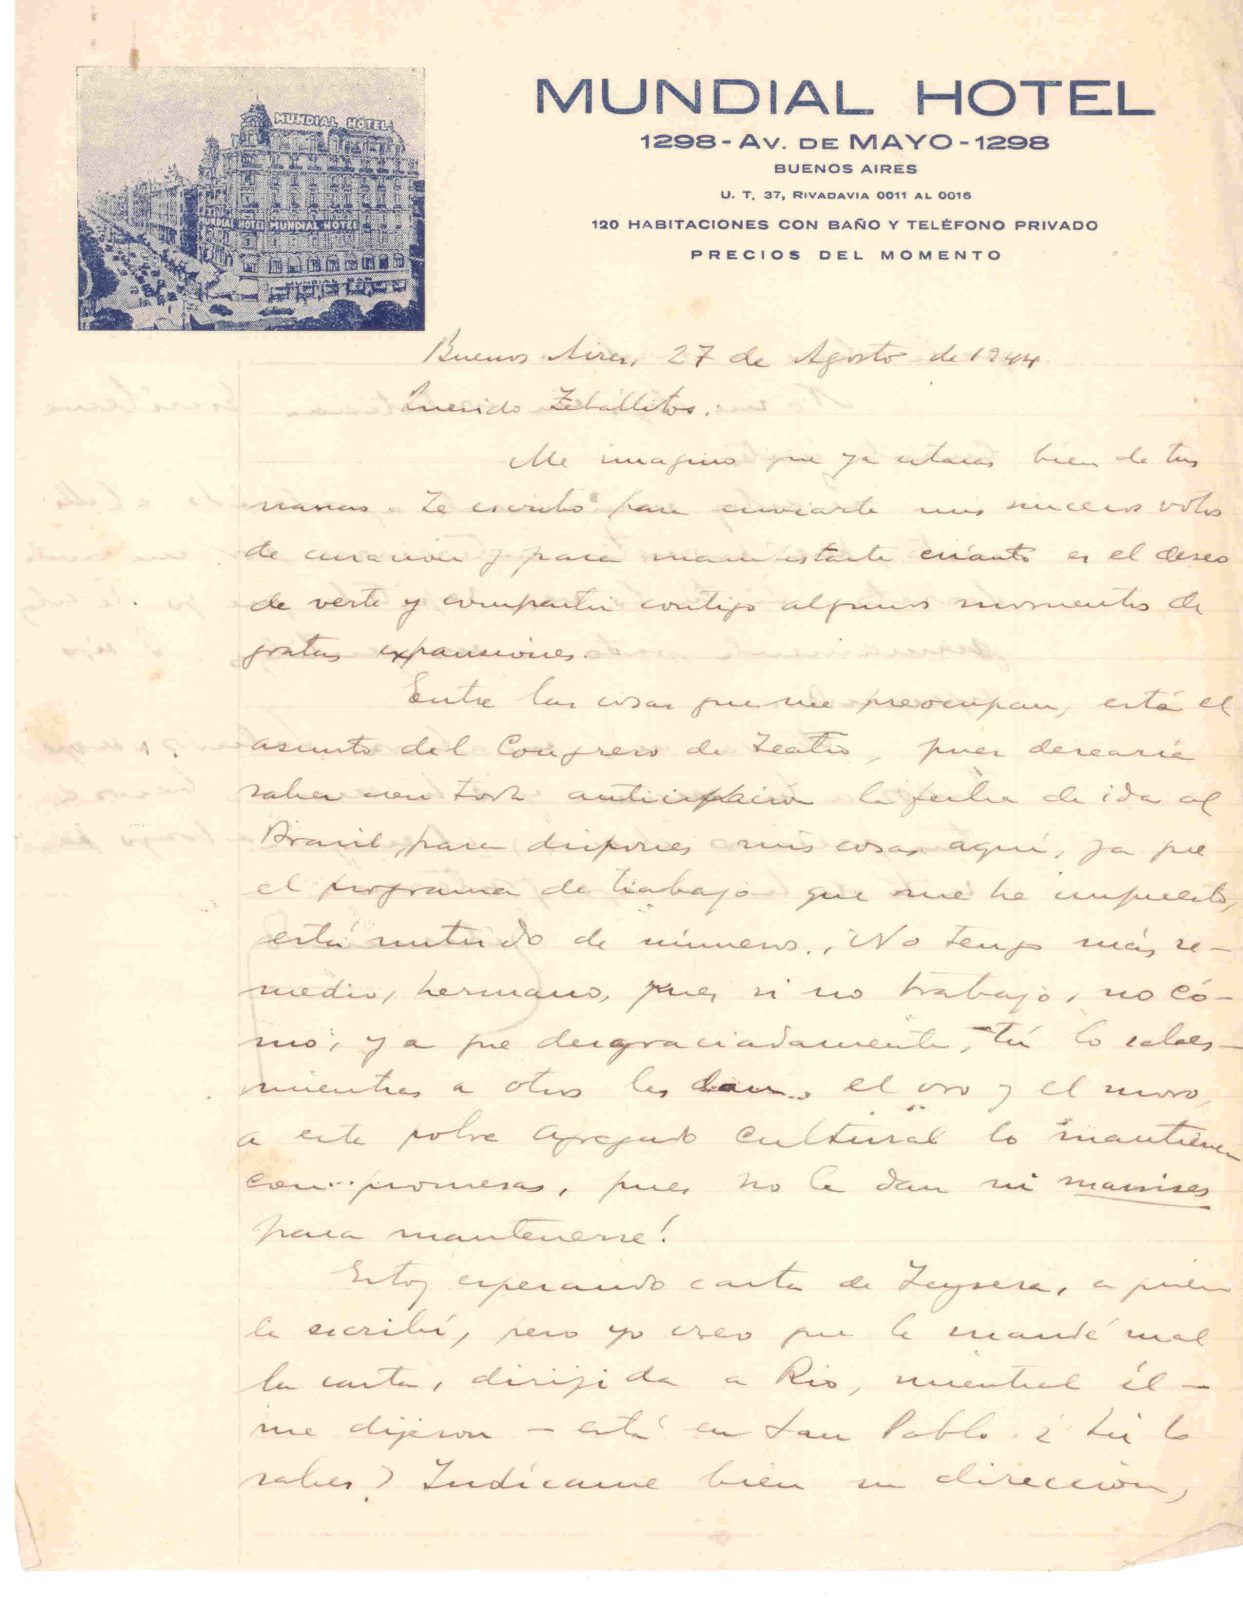 MUNDIAL HOTEL
1298 - AV. DE MAYO - 1298
BUENOS AIRES
U. T. 37, RIVADAVIA 0011 AL 0016
120 HABITACIONES CON BAÑO Y TELÉFONO PRIVADO
PRECIOS DEL MOMENTO
MUNDIAL HOTEL
MUNDIAL HOTEL MUNDIAL HOTEL
Buenos Aires, 27 de Agosto de 1944.
Querido Zeballitos.
Me imagino que ya estarás bien de tus
nanas. Te escribo para enviarte mis sinceros votos
de curación y para manifestarte cuánto es el deseo
de verte y compartir contigo algunos momentos de
gratas expansiones.
Entre las cosas que me preocupan, está el
asunto del Congreso de Teatro, pues desearía
saber con toda anticipación la fecha de ida al
Brasil para disponer mis cosas aquí, ya que
el programa de trabajo que me he impuesto,
está nutrido de números. No tengo más re-
medio, hermano, pues si no trabajo, no có-
mo; y a que desgraciadamente, tú lo sabes -
mientras a otros les dan.. el oro y el moro,
a este pobre Agregado Cultural lo mantienen
con... promesas, pues no le dan ni manises
para mantenerse!
Estoy esperando carta de Teysera, a quien
le escribí, pero yo creo que le mandé mal
la carta, dirijida a Rio, mientras él -
me dijeron - está en San Pablo. ¿ tú lo
sabes? Indícame bien su dirección,